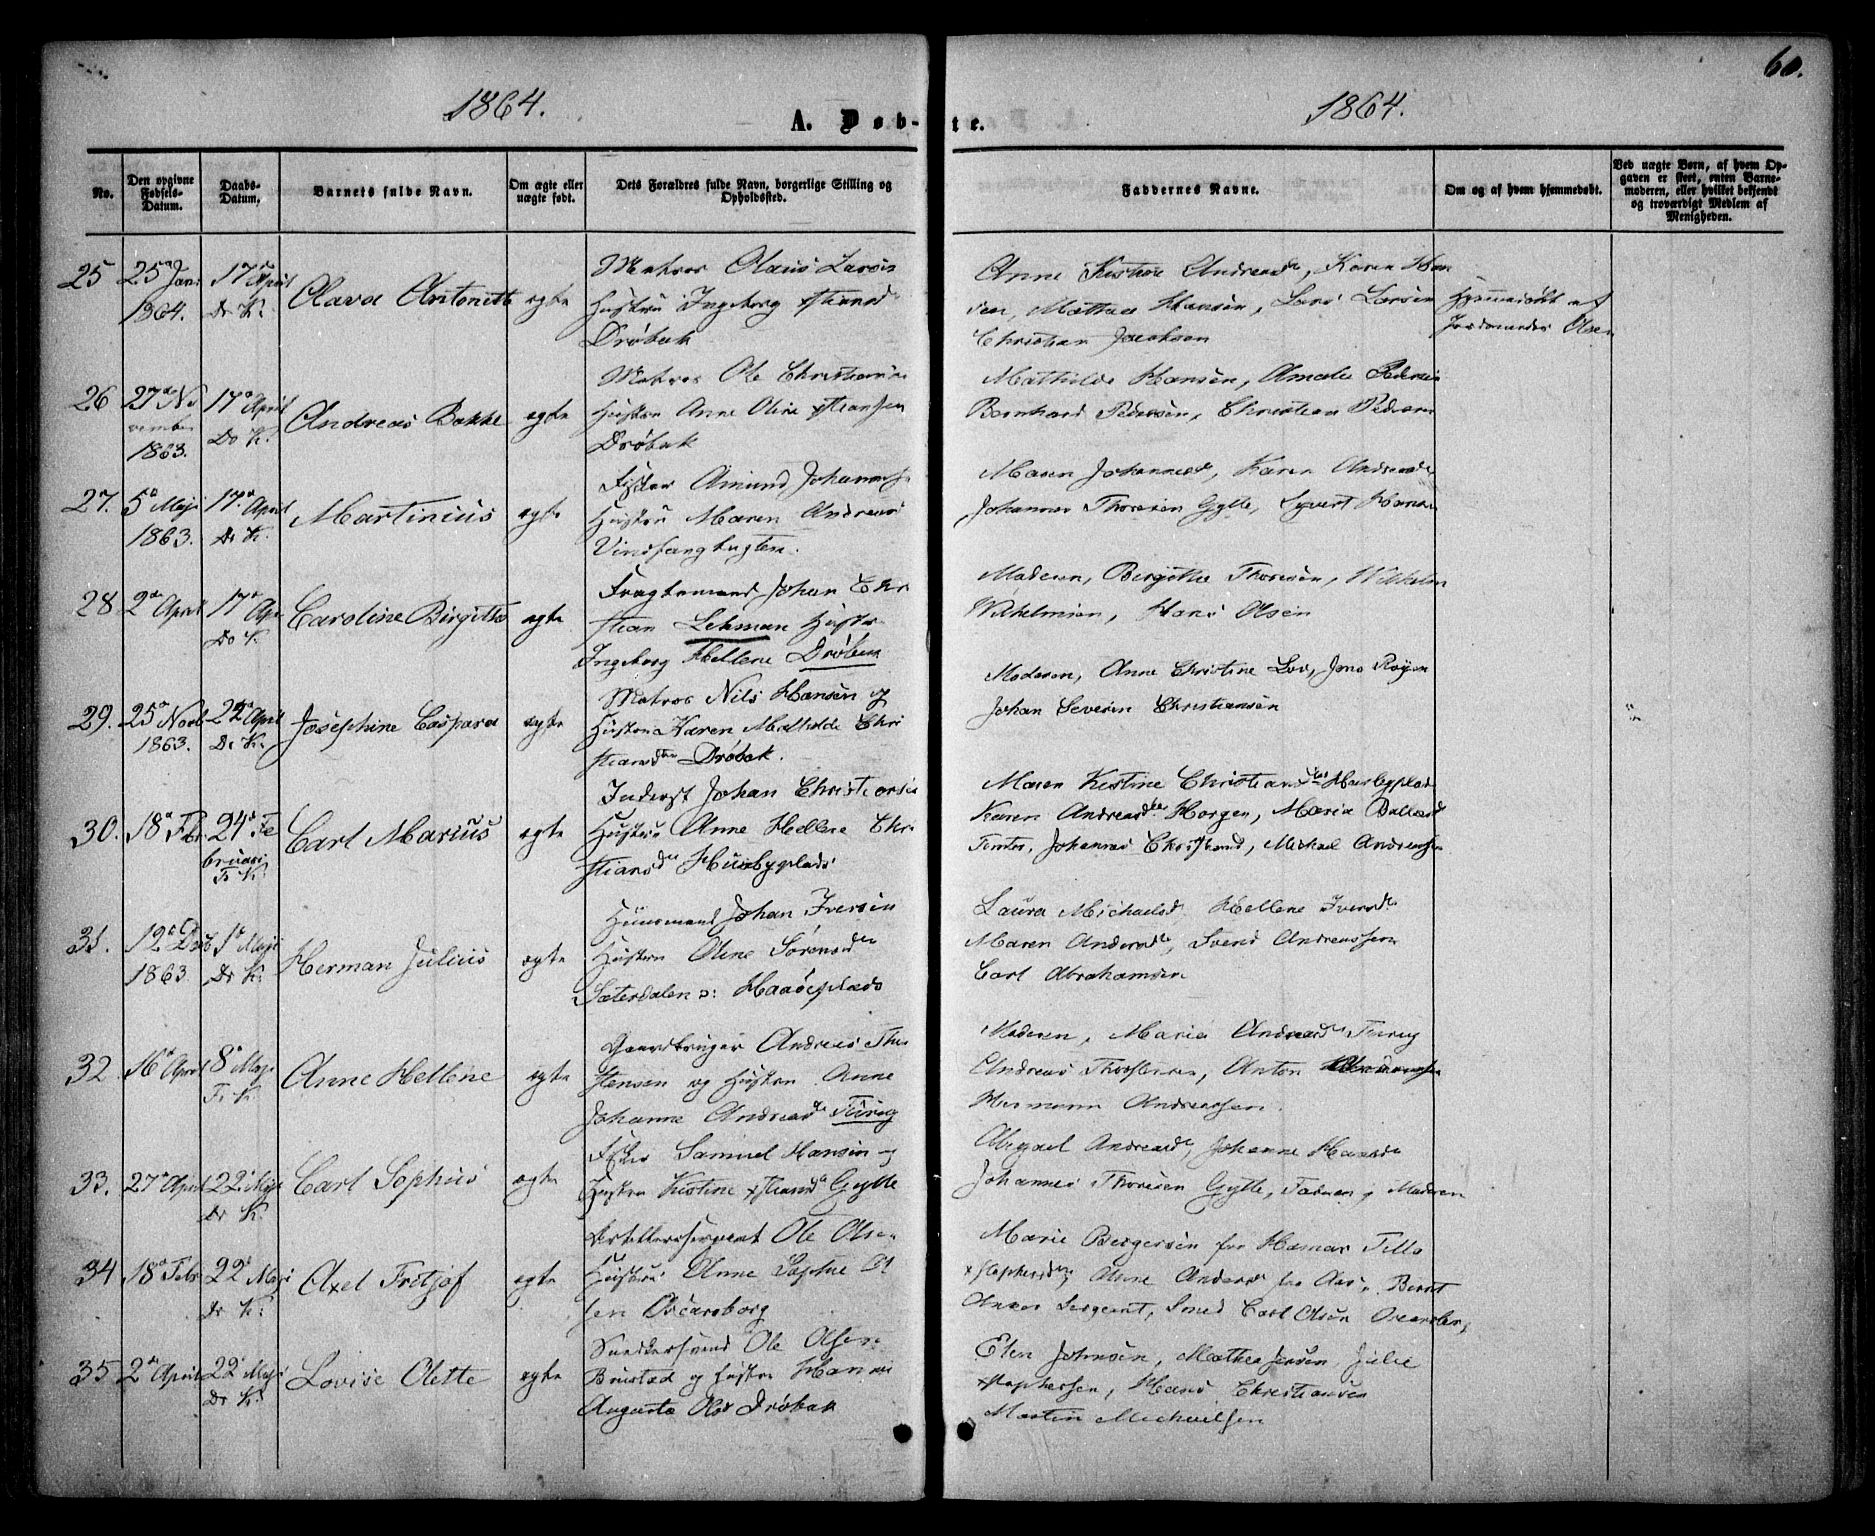 60.
1864.
A. Døb-
te.
1864.
No.
Den opgivne Fødsels-Datum.
Daabs-Datum.
Barnets fulde Navn.
Om ægte eller uægte født.
Dets Forældres fulde Navn, borgerlige Stilling og Opholdssted.
Faddernes Navne.
Om og af hvem hjemmedøbt.
Ved uægte Børn, af hvem Opgaven er skeet, enten Barnemoderen, eller hvilket bekjendt og troværdigt Medlem af Menigheden.
25 25de Jan 1864. 17de April Dr K. Olava Antonette ægte
Matros Olaus Larsen
Hustru Ingeborg Xstiansd
Drøbak
Anne Kistine Andreasd, Karen Han
sen, Mathea Hansen, Lars Larsen
Christian Jacobsen
Hjemmedøbt af
Jordmoder Olsen
26 27de November 1863. 17de April Dr K. Andreas Bakke ægte
Matros Ole Christiansen
Hustru Anne Oline Xstiansen
Drøbak
Mathilde Hansen, Amalie Pedersen
Bernhard Pedersen, Christian Pedersen
27. 5de Maji 1863. 17de April Dr K. Martinius ægte
Fisker Amund Johannes
Hustru Maren Andreas
Vindfangbugten.
Maren Johannesd, Karen Andreasd
Johannes Thoresen Gylte, Syvert Hansen
28 2de April 17de Apr Dr K. Caroline Birgitte ægte
Fragtemand Johan Chri
stian Lehman Hustru
Ingeborg Hellene Drøbak
Moderen, Bergithe Thoresen, Wilhelm
Wilhelmsen, Hans Olsen
29. 25de Novb 1863. 24de April Dr K. Josephine Caspara ægte
Matros Nils Hansen og
Hustru Karen Mathilde Chri
stiansdtr Drøbak.
Moderen, Anne Christine Lov, Jens Røyen
Johan Severin Christiansen
30. 18de Febr 24de Februar Fr K. Carl Marius ægte
Inderst Johan Christiansen
Hustru Anne Hellene Chri
stiansdtr Husbyplads
Maren Kistine Christiansdtr Husbyplads
Karen Andreasdtr Horgen, Maria
Johannes Michael Andreassen
31. 12te Decb 1863 1ste Maji Dr K. Herman Julius ægte
Huusmand Johan Iversen
Hustru Oline Sørensdtr
Sæterdalen o: Haaøeplads
Laura Michaelsd Hellene Iversd
Maren Andersdtr, Svend Andreassen
Carl Abrahamsen
32 16de April 8de Maji Fr K. Anne Hellene ægte
Gaardbruger Andreas Tho
stensen og Hustru Anne
Johanne Andreasdtr Tiireg
Moderen, Maria Andreasdtr Tiireg
Andreas Thorstensen, Anton
Hermann Andreassen.
33. 27de April 22de Maji Dr K. Carl Sophus ægte
Fisker Samuel Hansen og
Hustru Kistine Xstiansd Gylte
Abigael Andreasd, Johanne Hansd
Johannes Thoresen Gylte, Faderen og Moderen
34 18de Febr 22de Maji Dr K. Axel Fritjof ægte
Artillerisergeant Ole Olsen
Hustru Anne Sophie Ol
sen Oscarsborg
Marie Bergersen fra Hamar
Xstophersd, Anne Andersd fra Aas, Bernt
Anker Sergeant, Smed Carl Olsen Oscarsborg
35 2den April 22de Maji Dr K. Lovise Olette ægte
Snedkersvend Ole Olsen
Brustad og Hustru Hanna
Augusta Olsd Drøbak
Elen Johnsen, Mathea Jensen, Julie
Xstophersen, Hans Christiansen
Martin Michelsen